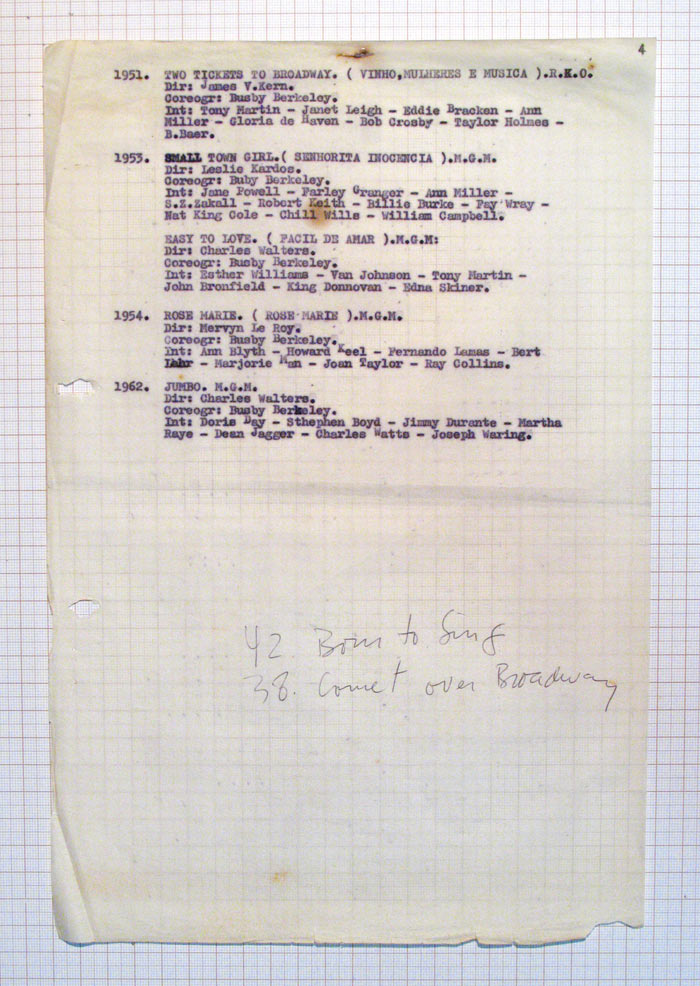 4
1951. TWO TICKETS TO BROADWAY. ( VINHO,MULHERES E MUSICA ).R.K.O.
Dir: James V.Kern.
Coreogr: Busby Berkeley.
Int: Tony Martin - Janet Leigh - Eddie Bracken - Ann
Miller - Gloria de Haven - Bob Crosby - Taylor Holmes -
B.Baer.
1953. SMALL TOWN GIRL.( SENHORITA INOCENCIA ).M.G.M.
Dir: Leslie Kardos.
Coreogr: Buby Berkeley.
Int: Jane Powell - Farley Granger - Ann Miller -
S.Z.Zakall - Robert Keith - Billie Burke - Fay Wray -
Nat King Cole - Chill Wills - William Campbell.
EASY TO LOVE. ( FACIL DE AMAR ).M.G.M:
Dir: Charles Walters.
Coreogr: Busby Berkeley.
Int: Esther Williams - Van Johnson - Tony Martin -
John Bronfield - King Donnovan - Edna Skiner.
1954. ROSE MARIE. ( ROSE MARIE ).M.G.M.
Dir: Mervyn Le Roy.
Coreogr: Busby Berkeley.
Int: Ann Blyth - Howard Keel - Fernando Lamas - Bert
Lahr - Marjorie Man - Joan Taylor - Ray Collins.
1962. JUMBO. M.G.M.
Dir: Charles Walters.
Coreogr: Busby Berkeley.
Int: Doris Day - Sthephen Boyd - Jimmy Durante - Martha
Raye - Dean Jagger - Charles Watts - Joseph Waring.
42. Born to Sing
38. Comet over Broadway